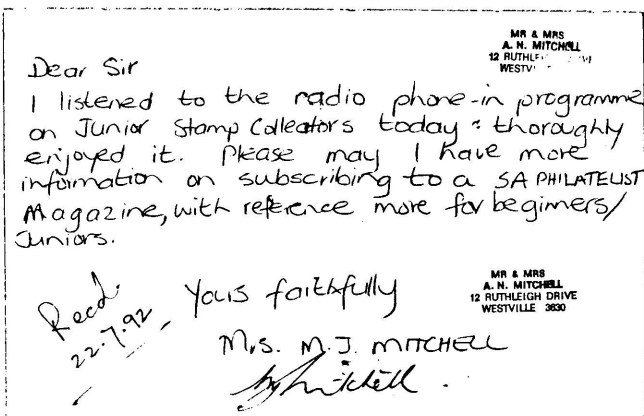 MR & MRS
A. N. MITCHELL
12
Dear Sir
I listened to the radio phone-in programme
on Junior Stamp Collectors today & thoroughly
enjoyed it. Please may I have more
information on subscribing to a SA PHILATELIST
Magazine, with reference more for beginners/
Juniors.
Recd.
22.7.92
Yours faithfully
MR & MRS
A. N. MITCHELL
12 RUTHLEIGH DRIVE
WESTVILLE 3630
Mrs. M.J. MITCHELL